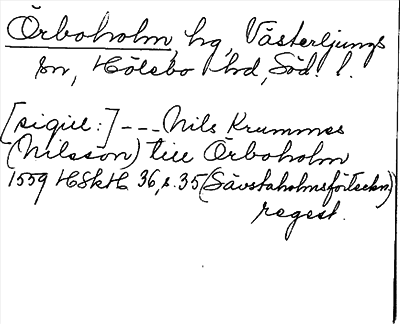 Örboholm, hg, Västerljungs
sn, Hölebo hd, Söd. l.
[sigill:] --- Nils Krummes
(Nilsson) till Örboholm
1559 HSkH 36, s. 35 (Sävstaholmsförteckn.)
regest.